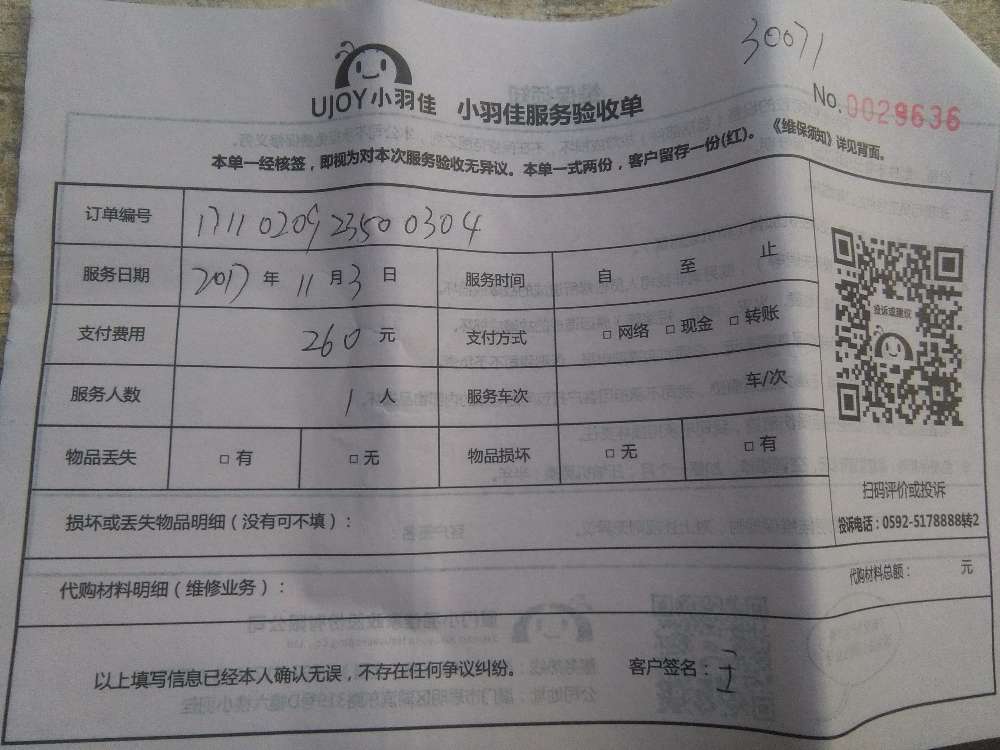 30071
UJOY小羽佳 小羽佳服务验收单
No.0029636
本单一经核签，即视为对本次服务验收无异议。本单一式两份，客户留存一份(红)。《维保须知》详见背面。
订单编号 17110209235000304
服务日期 2017 年 11 月 3 日 服务时间 自 至 止
支付费用 260 元 支付方式 □ 网络 □ 现金 □ 转账
服务人数 1 人 服务车次 车/次
物品丢失 □ 有 □ 无 物品损坏 □ 无 □ 有
投诉或建议
扫码评价或投诉
投诉电话：0592-5178888转2
损坏或丢失物品明细（没有可不填）：
代购材料明细（维修业务）： 代购材料总额： 元
以上填写信息已经本人确认无误，不存在任何争议纠纷。 客户签名：